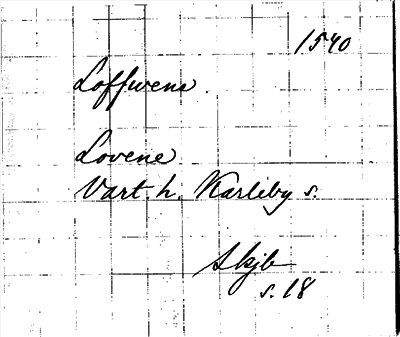 1540
Loffwens.
Lovene
Vart. h. Karleby s.
Skjb
s. 18